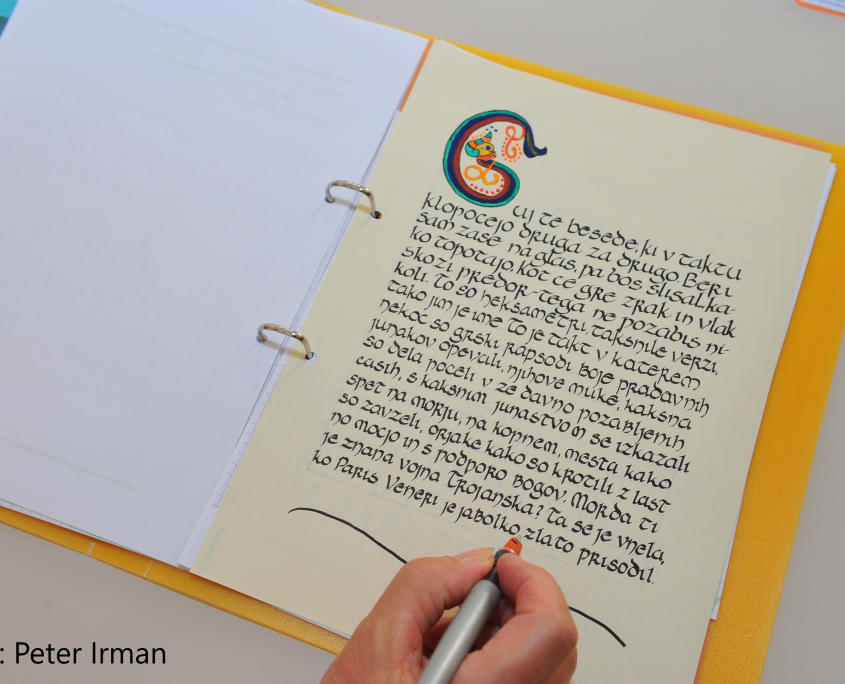 Čuj te besede, ki v taktu
klopocejo druga za drugo Beri
sam zase naglas, pa bos slisal, ka-
ko topotajo. Kot ce gre zrak in vlak
skozi predor - tega ne pozabis ni-
koli. To so heksametri, taksnile verzi,
tako jim je ime To je takt v katerem
nekoč so grski rapsodi boje pradavnih
junakov opevali, njihove muke, kaksna
so dela poceli v ze davno pozabljenih
casih, s kaksnim junastvom se izkazali
spet na morju, na kopnem, mesta kako
so zavzeli, orjake kako so krotili z last
no mocjo in s podporo bogov. Morda ti
je znana vojna Trojanska? Ta se je vnela,
ko Paris Veneri je jabolko zlato prisodil.
: Peter Irman